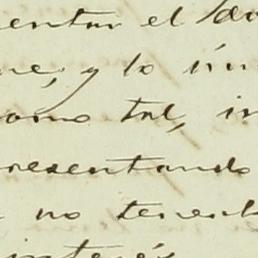 entar el
ne, y lo
como tal, in
presentando
no tener
interés